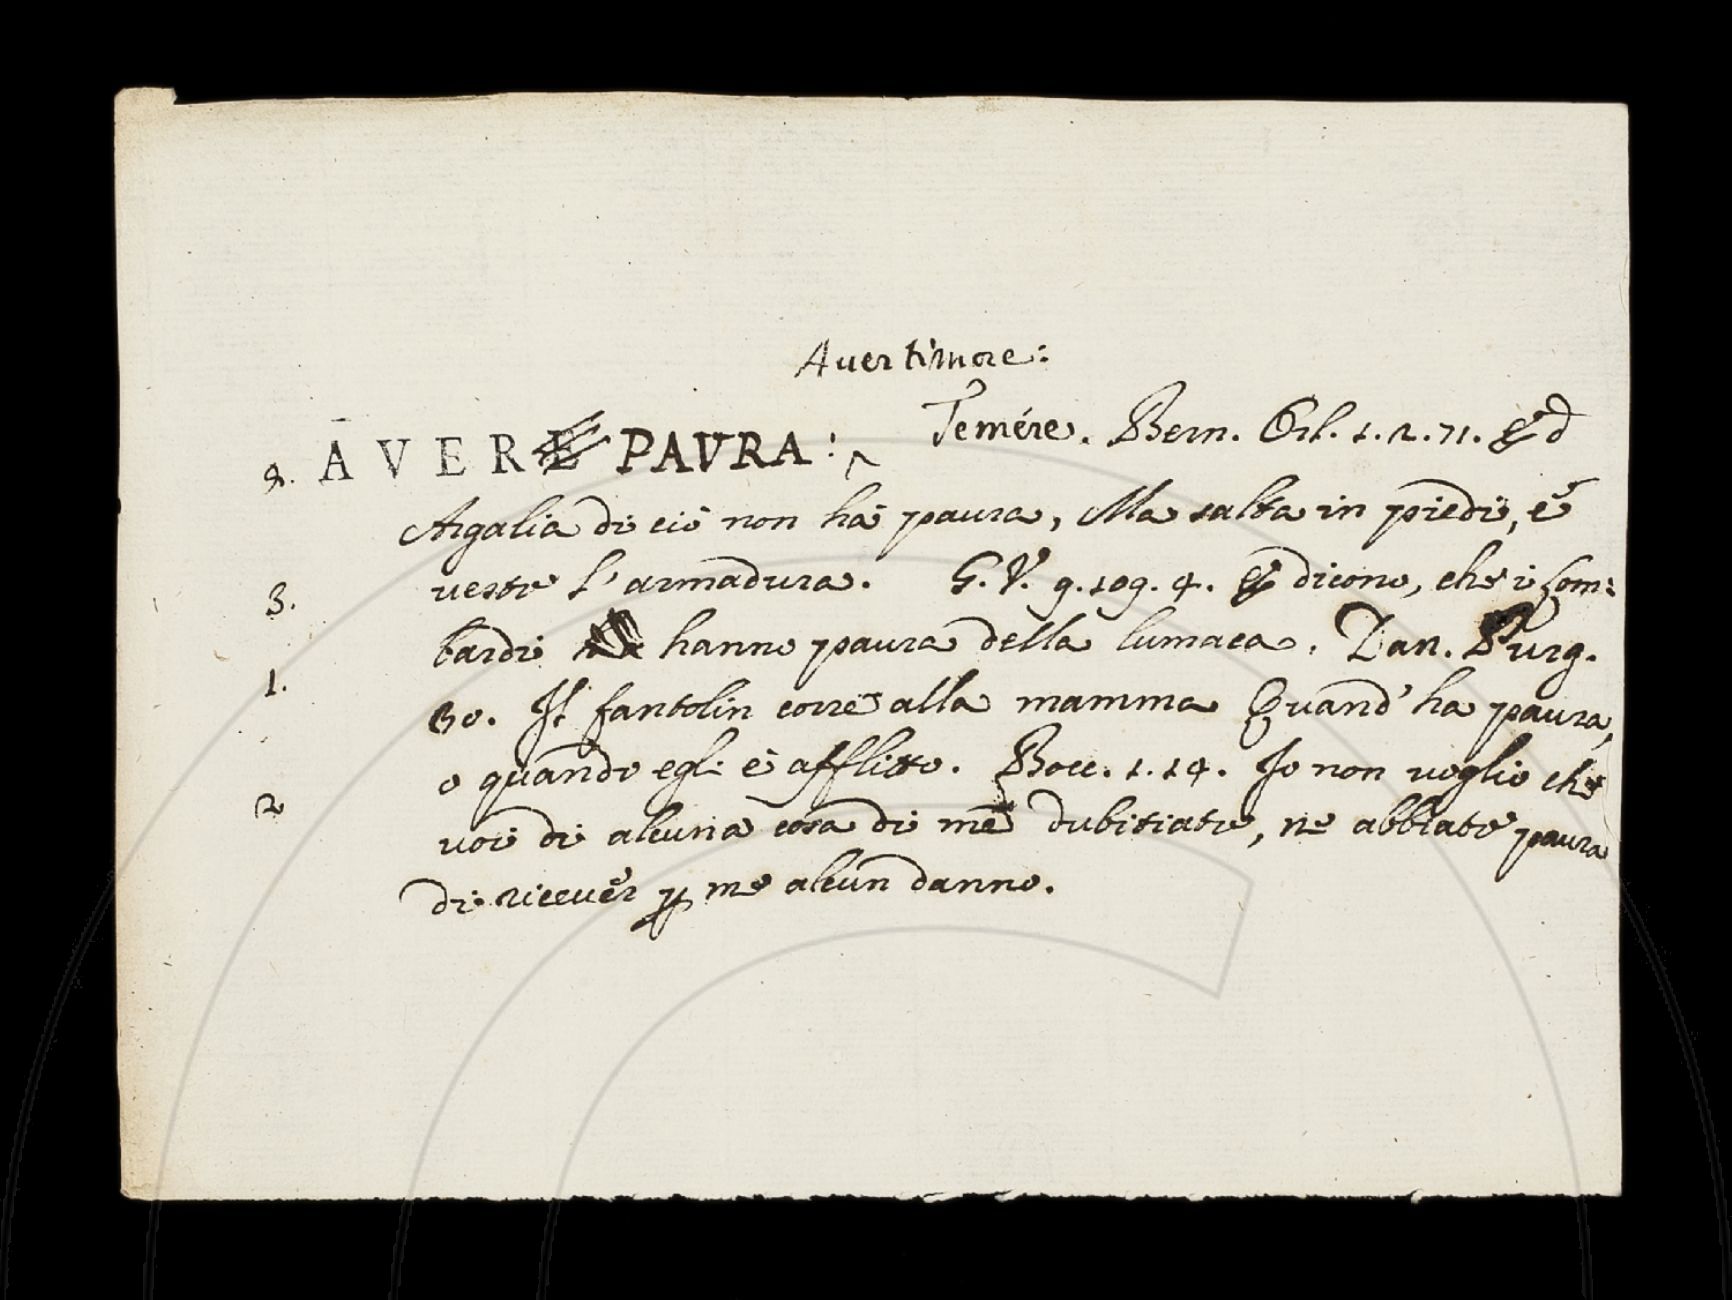 Aver timore:
4. AVERE PAVRA: ^ Temére. Bern. Orl. 1. 2. 71. Ed
Argalia di ciò non hà paura, Ma salta in piedi, é
3. veste l'armadura. G. V. 9. 109. 4. E dicono, che i Lom:
bardi hanno paura della lumaca. Dan. Purg.
1. 30. Il fantolin corre alla mamma Quand' ha paura,
o quando egli è afflitto. Bocc. 1. 14. Io non voglio che
2 voi di alcuna cosa di me dubitiate, ne abbiate paura
di ricever ꝑ me alcun danno.